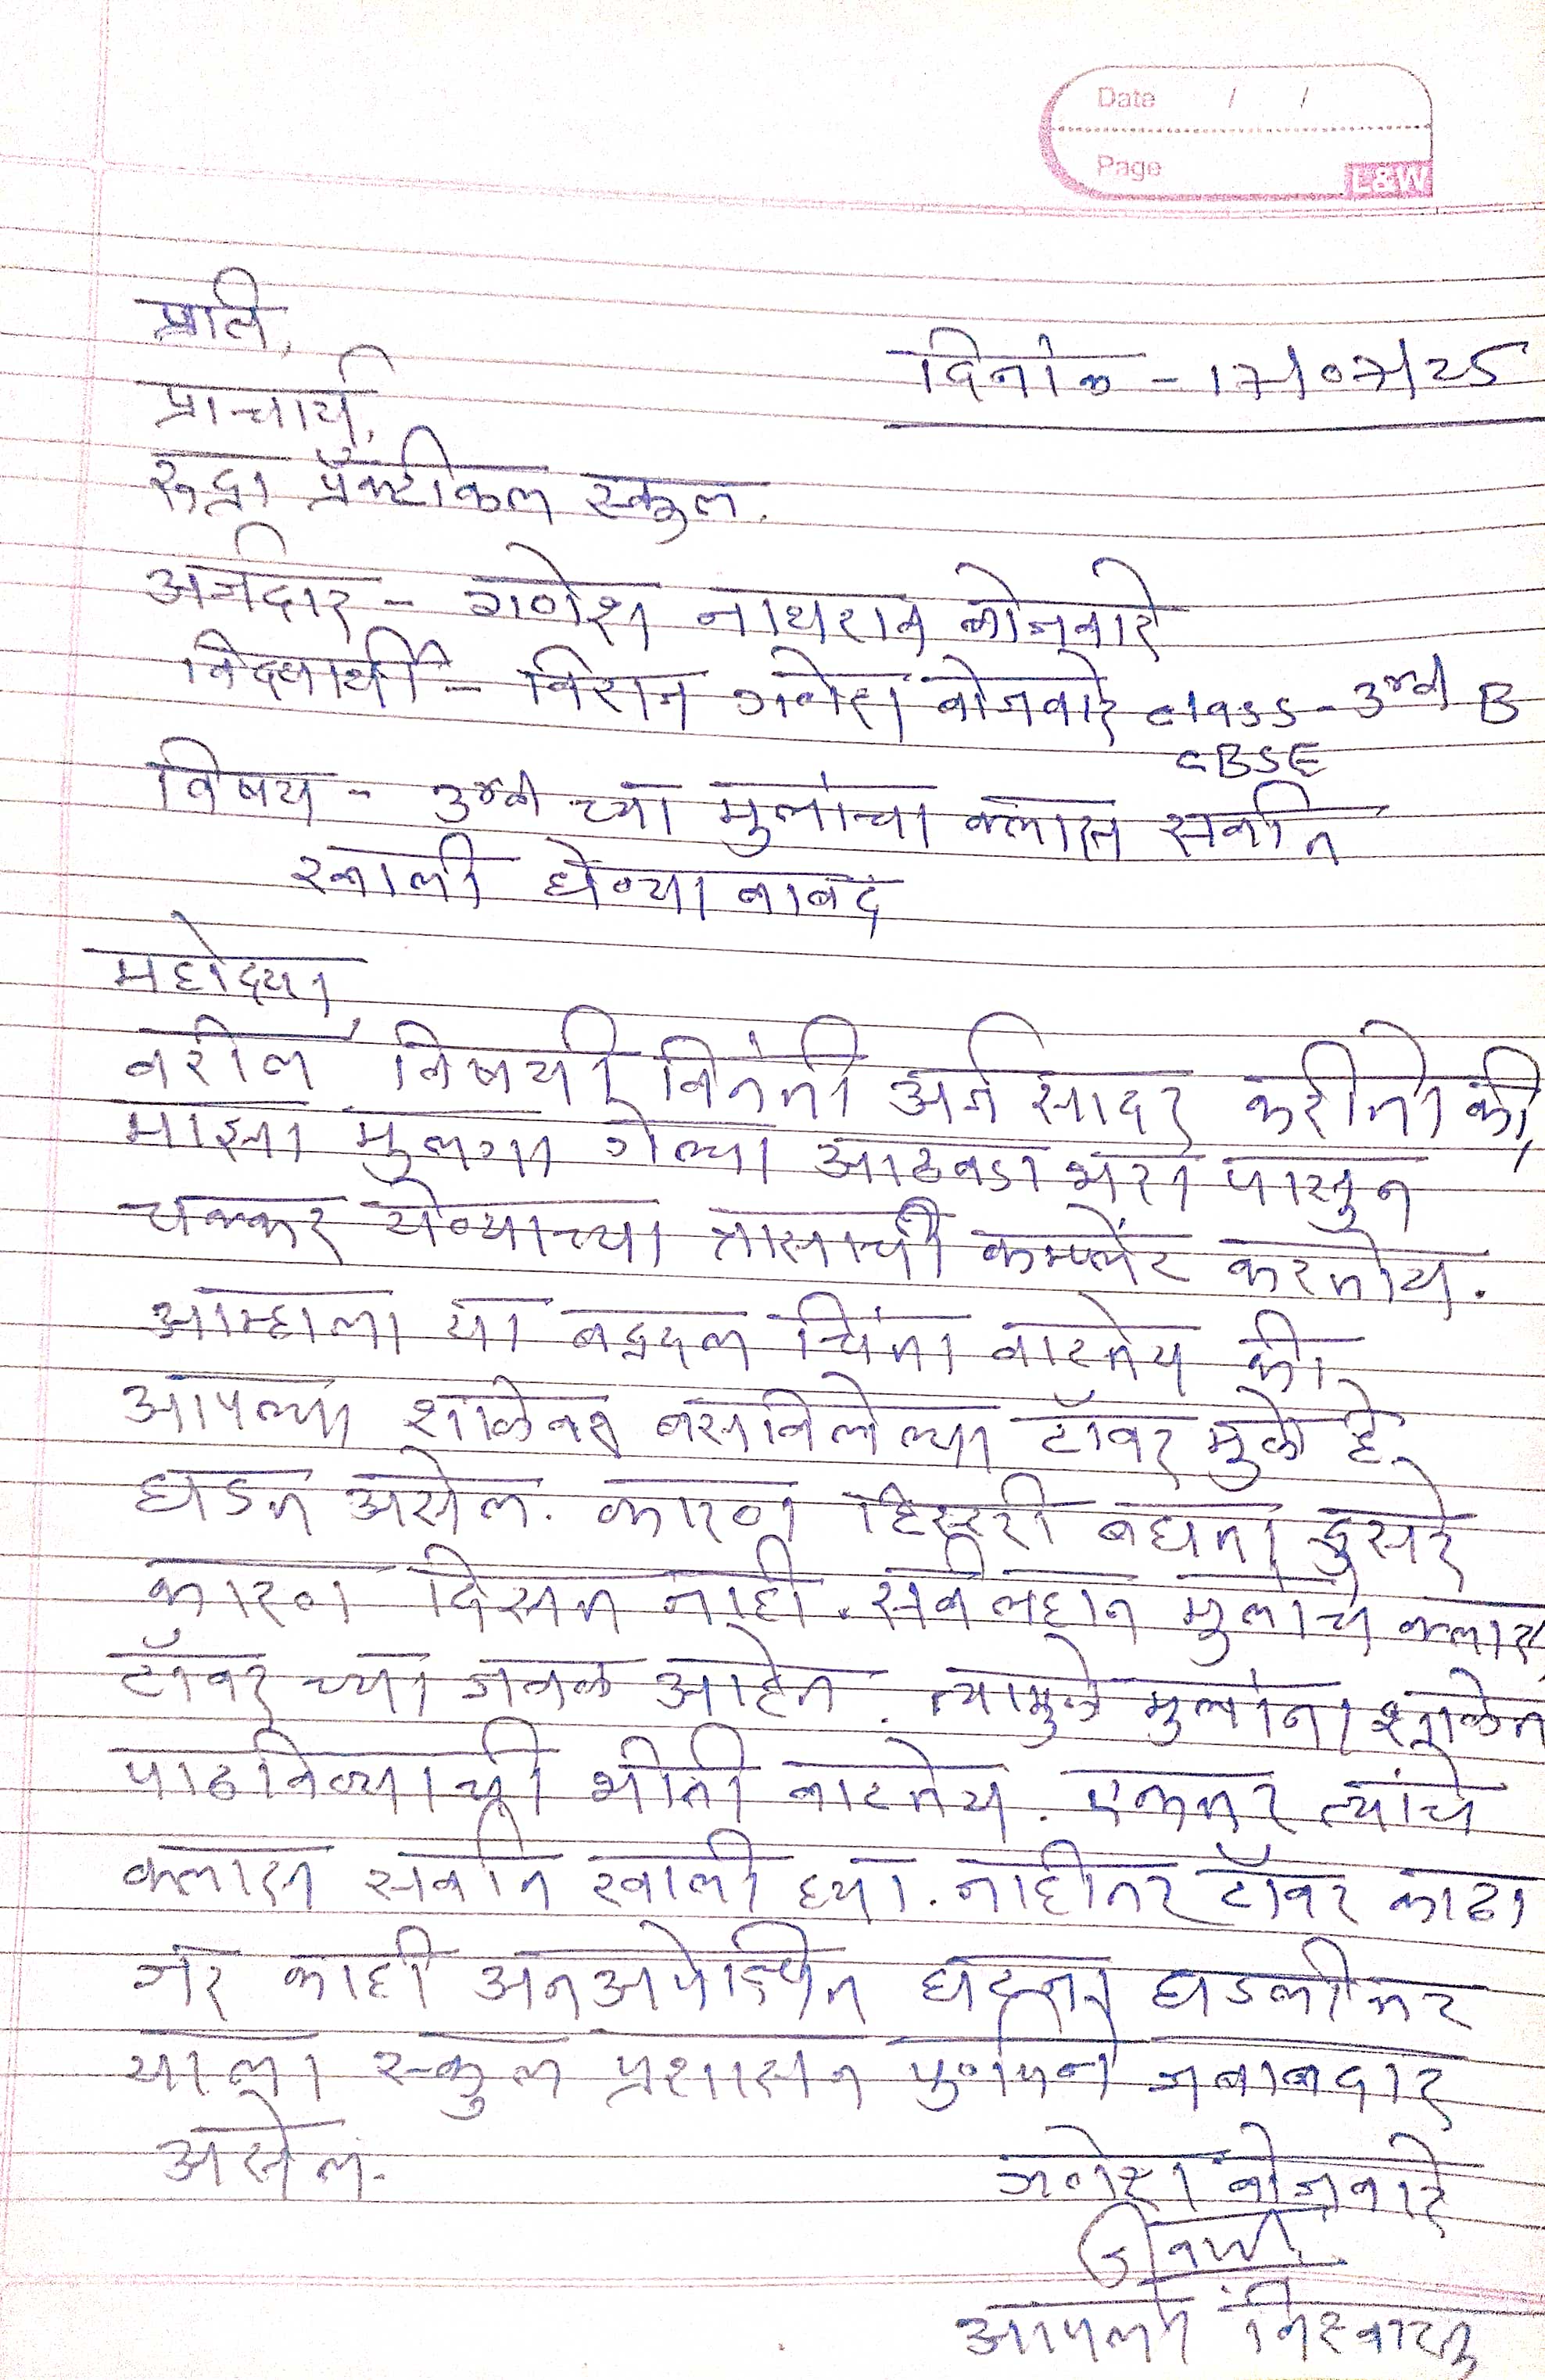 Date / /
Page
L&W
प्रति,
दिनांक - 17/07/25
प्राचार्य,
रुद्रा प्रॅक्टीकल स्कुल.
अर्जदार - गणेश नाथराव बोजवारे
विद्यार्थी - विराज गणेश बोजवारे class - 3री B
CBSE
विषय - 3री च्या मुलांचा क्लास सर्वात
खाली घेण्या बाबद
महोदया,
वरील विषयी विनंती अर्ज सादर करीतो की,
माझा मुलगा गेल्या आठवडा भरा पासुन
चक्कर येण्याच्या त्रासाची कम्प्लेंट करतोय.
आम्हाला या बद्दल चिंता वाटतेय की
आपल्या शाळेवर बसविलेल्या टॉवर मुळे हे
घडत असेल. कारण हिस्ट्री बघता दुसरे
कारण दिसत नाही. सर्व लहान मुलांचे क्लास
टॉवर च्या जवळ आहेत. त्यामुळे मुलांना शाळेत
पाठविण्याची भीती वाटतेय. एकतर त्यांचे
क्लास सर्वात खाली घ्या. नाहीतर टॉवर काढा
जर काही अनअपेक्षित घटना घडली तर
याला स्कुल प्रशासन पुर्णपणे जबाबदार
असेल.
गणेश बोजवारे
आपला विश्वासु